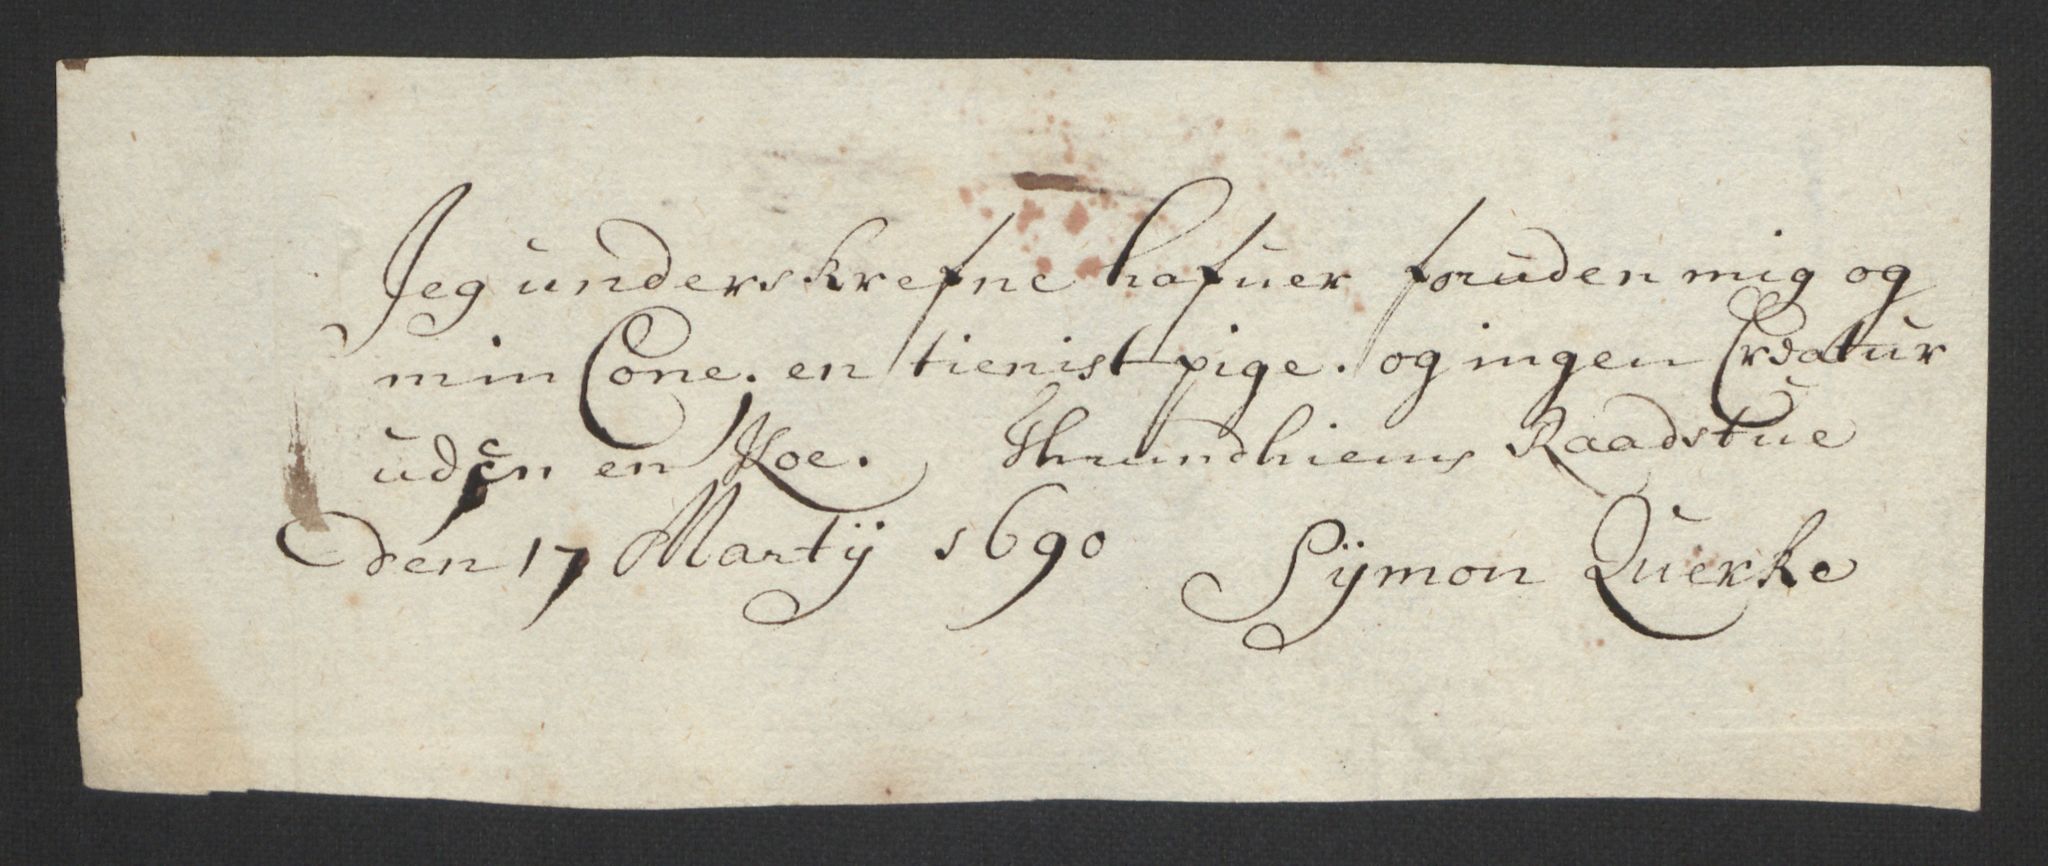 Jeg underskrefne hafuer foruden mig og
min Cone. en tienist pige. og ingen Creatur
uden en Koe. Thrundhiems Raadstue
den 17 Martÿ 1690 Sÿmon Querke